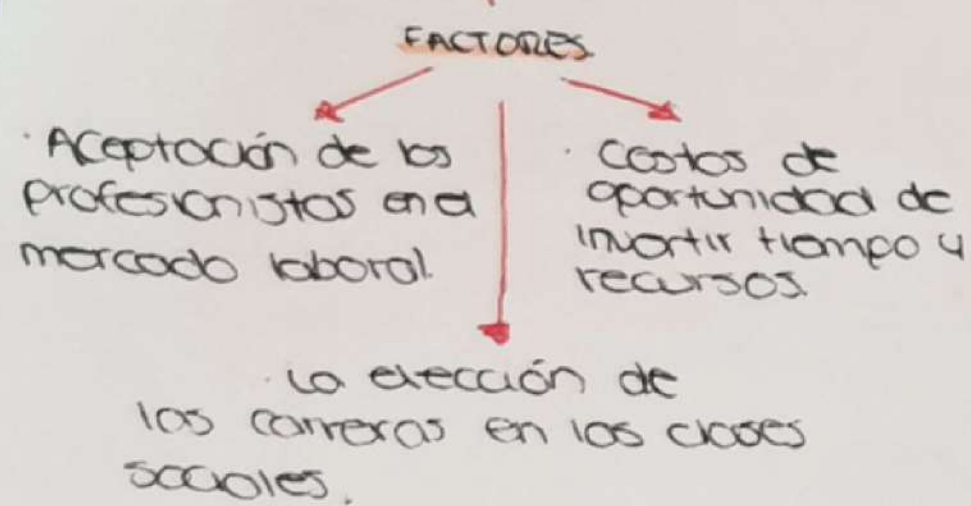 FACTORES
· Aceptación de los
profesionistas en el
mercado laboral.
· Costos de
oportunidad de
invertir tiempo y
recursos.
· La elección de
las carreras en las clases
sociales.